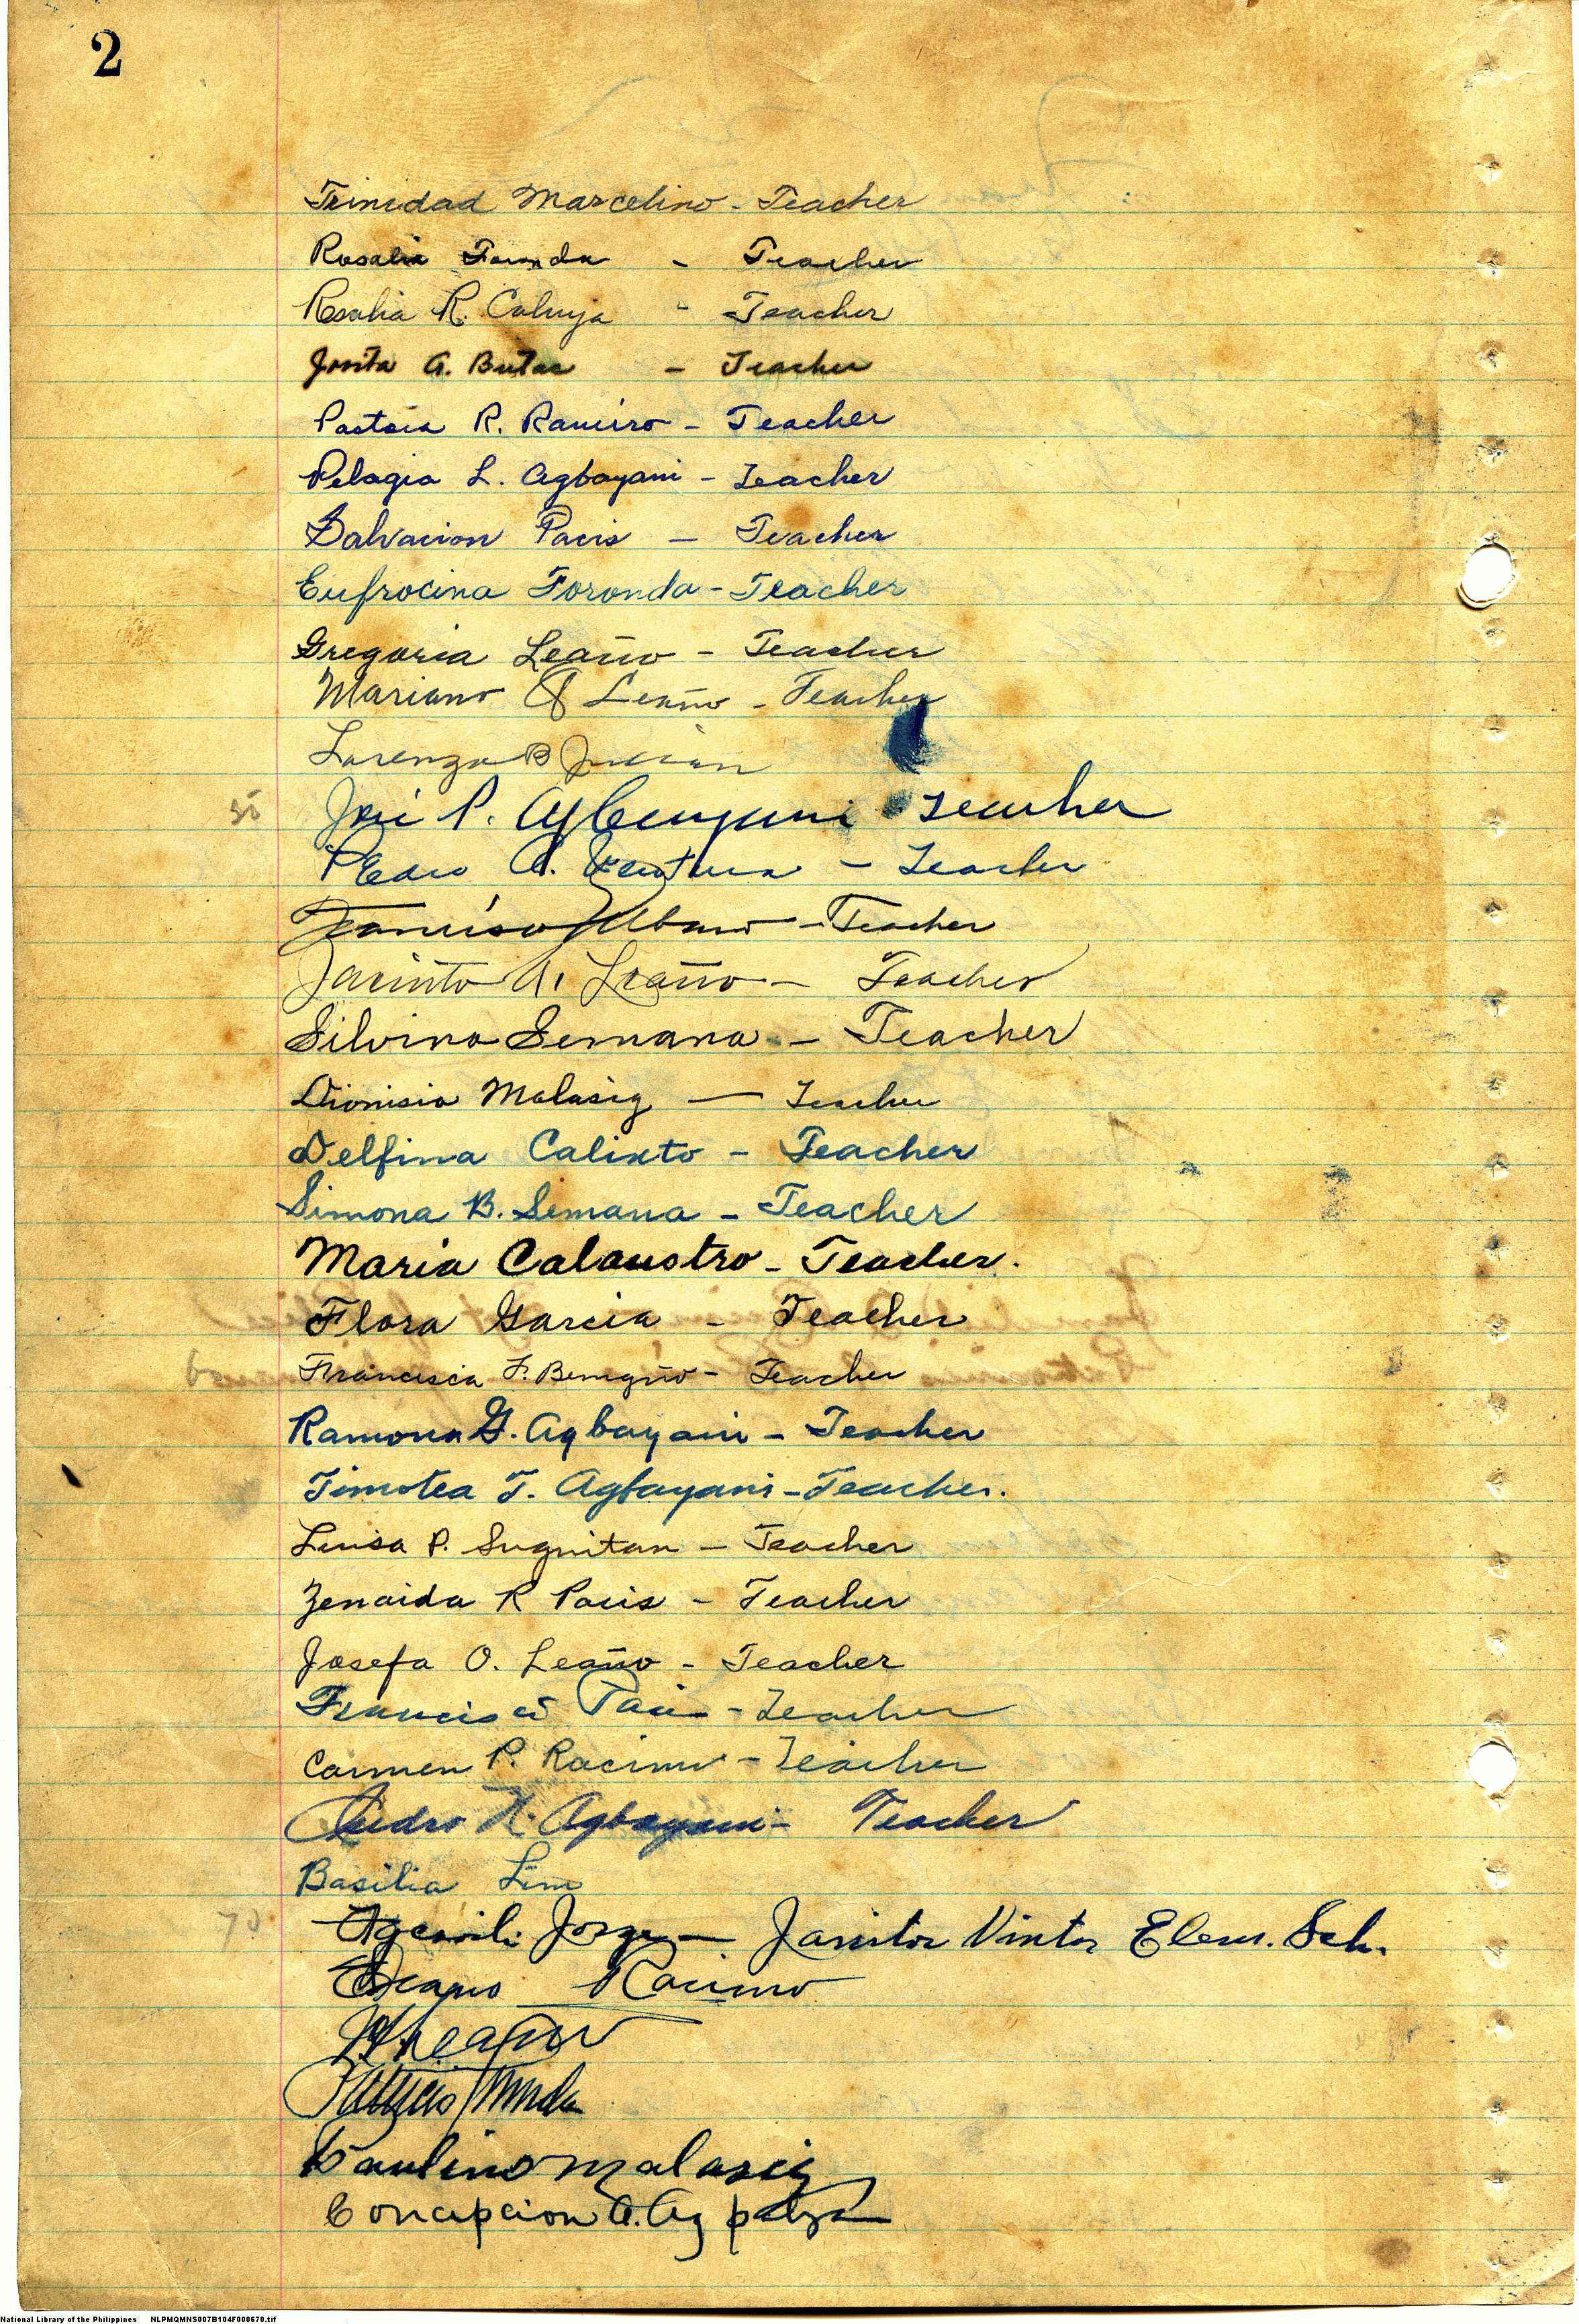 2
Trinidad Marcelino - Teacher
Rosalia Foronda - Teacher
Rosalia R. Caluya - Teacher
Josita A. Butac - Teacher
Pastora R. Ramiro - Teacher
Pelagia L. Agbayani - Teacher
Salvacion Pacis - Teacher
Eufrocina Foronda - Teacher
Gregoria Leaño - Teacher
Mariano Leaño - Teacher
Lorenzo B Julian
50 José P. Agbayani Teacher
Pedro A. Ventura - Teacher
Francisco Albano - Teacher
Jacinto A. Leaño - Teacher
Silvino Semana - Teacher
Dionisia Malasig - Teacher
Delfina Calixto - Teacher
Simona B. Semana - Teacher
Maria Calaustro - Teacher.
Flora Garcia - Teacher
60 Francisca F. Benigno - Teacher
Ramona G. Agbayani - Teacher
Timotea T. Agbayani - Teacher.
Luisa P. Sugnitan - Teacher
Zenaida R Pacis - Teacher
Josefa O. Leaño - Teacher
Francisco - Teacher
Carmen P. Racimo - Teacher
Pedro N. Agbayani - Teacher
Basilia Lim
70 Jorge - Janitor Vintar Elem. Sch.
Racimo
Paulino Malasig
Concepcion A. Agpalza
National Library of the Philippines NLPMQMNS007B104F000670.tif